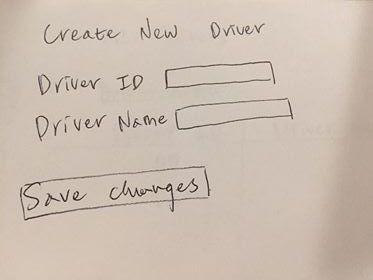 Create New Driver
Driver ID
Driver Name
Save changes